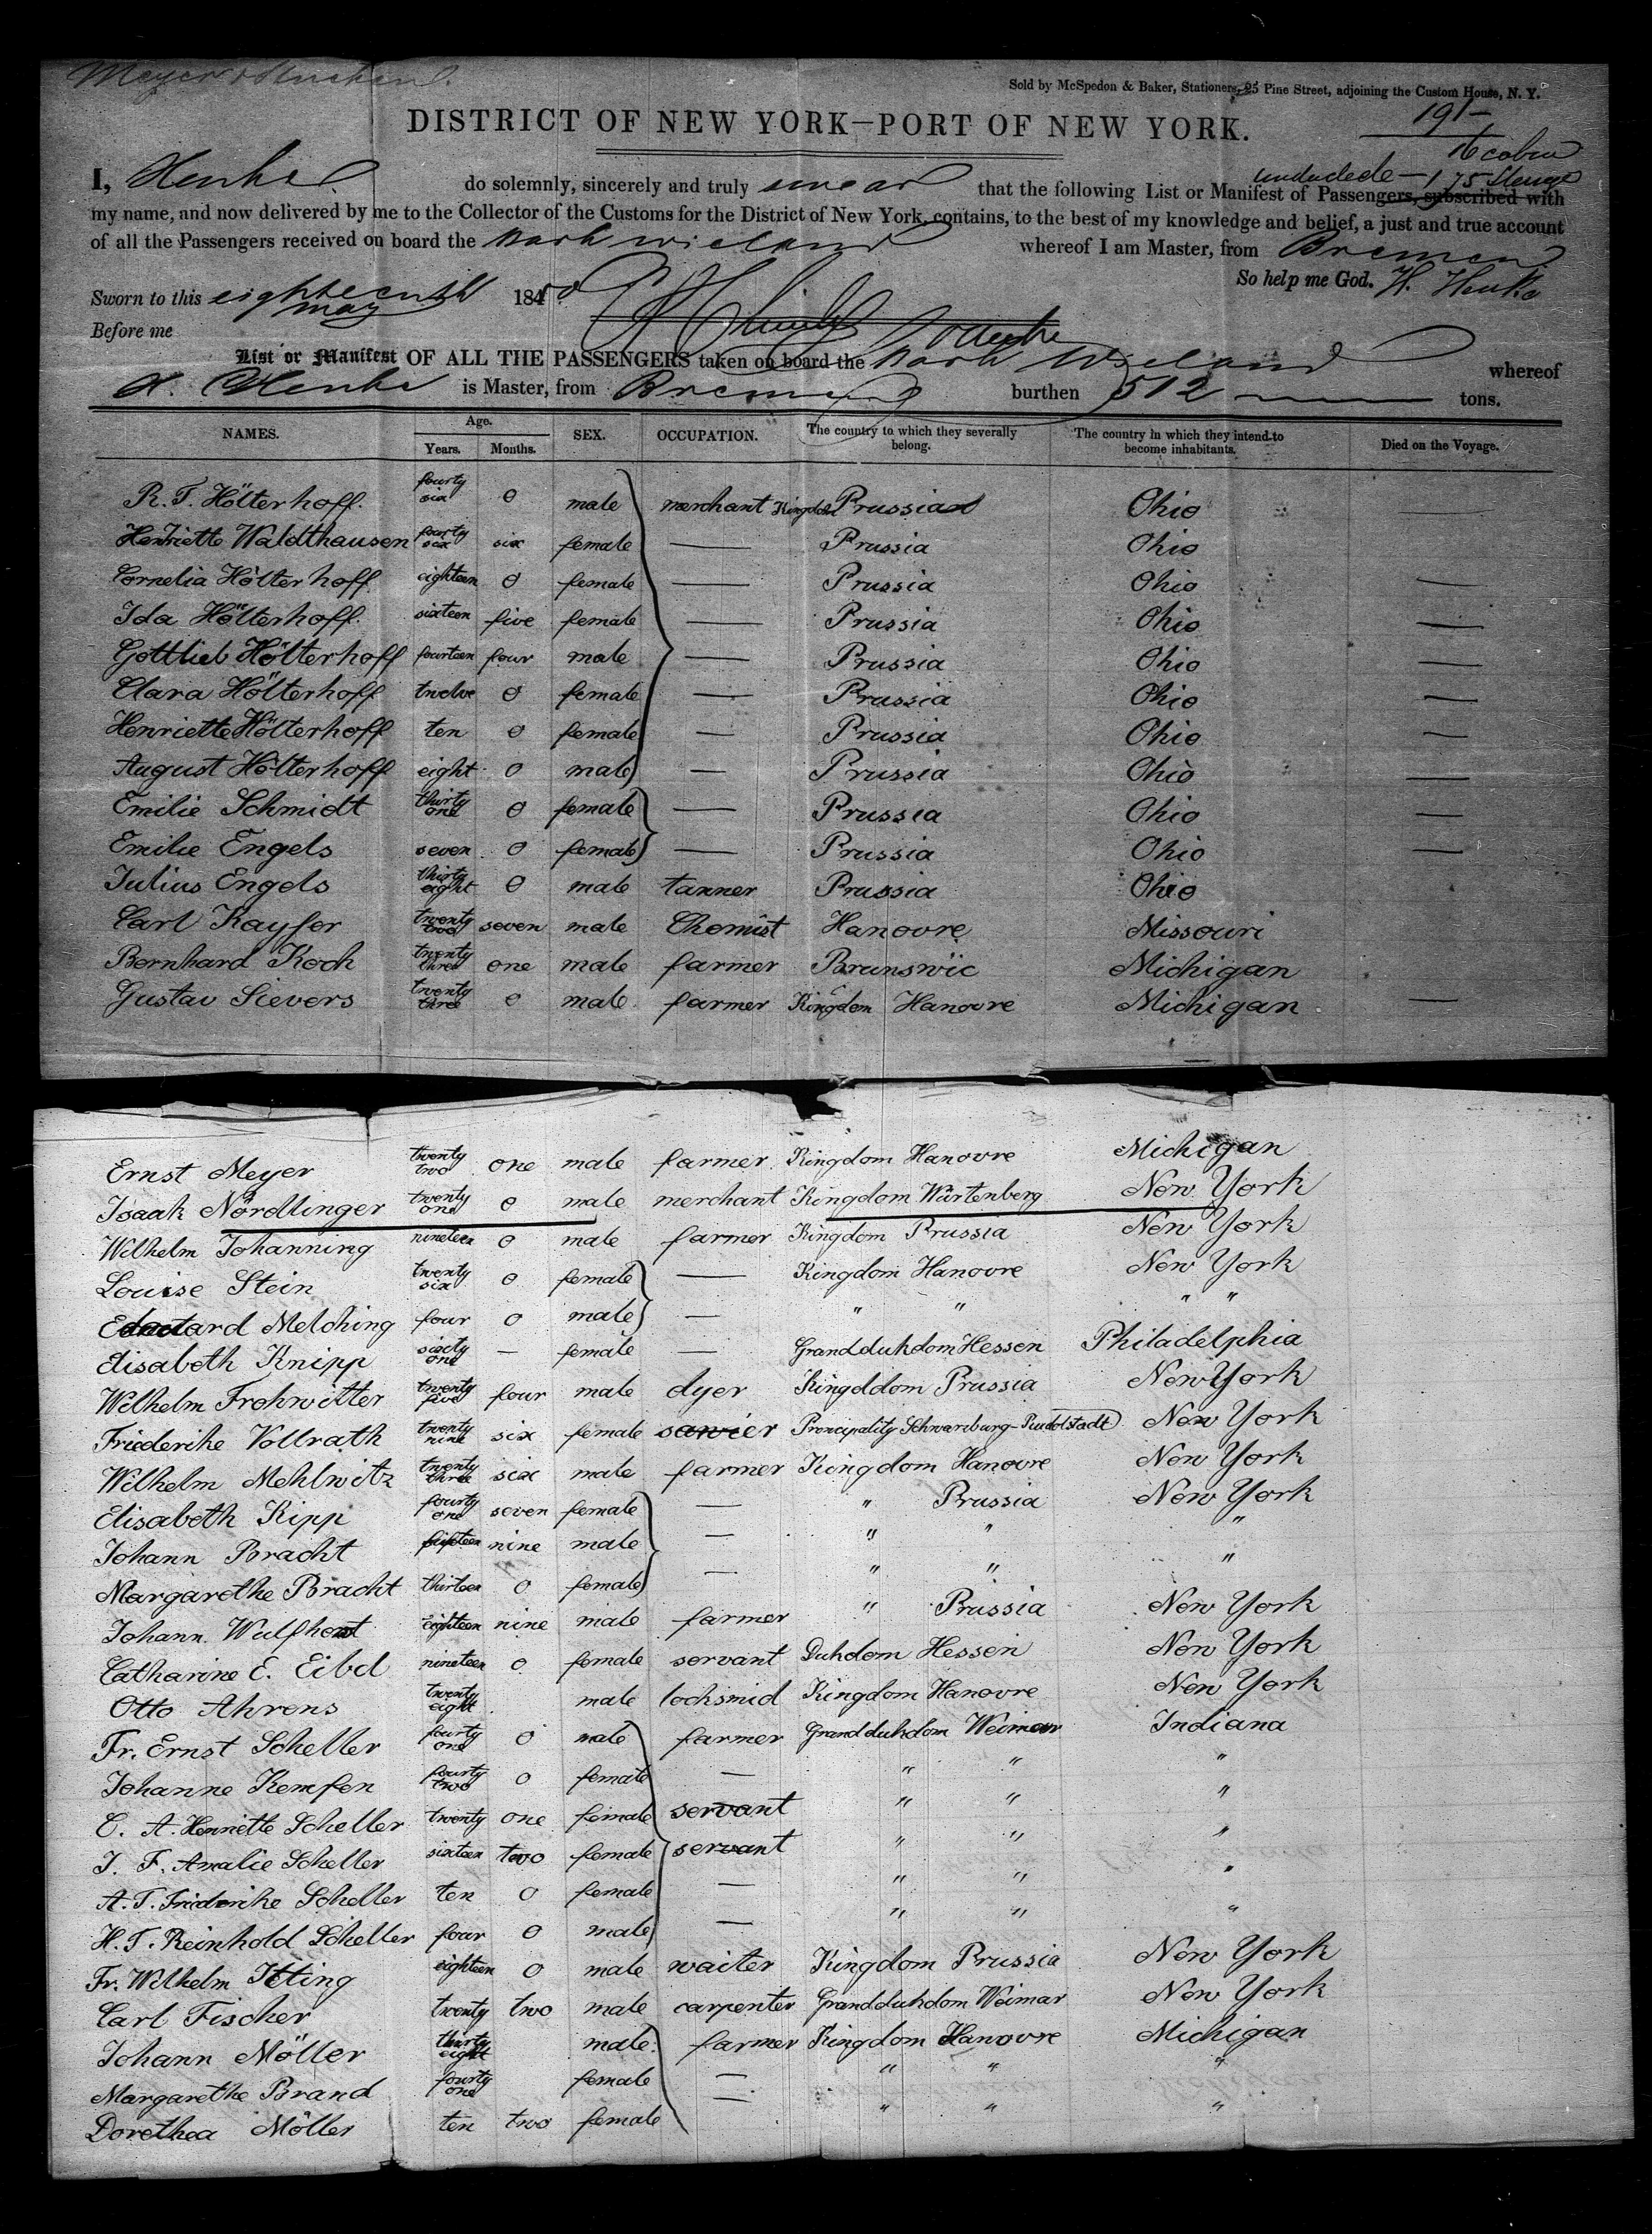 Meyer &
Sold by McSpedon & Baker, Stationers, 25 Pine Street, adjoining the Custom House, N. Y.
DISTRICT OF NEW YORK—PORT OF NEW YORK.
191-
16 cabin
175 Steerage
I, Henke do solemnly, sincerely and truly swear that the following List or Manifest of Passengers, subscribed with
my name, and now delivered by me to the Collector of the Customs for the District of New York, contains, to the best of my knowledge and belief, a just and true account
of all the Passengers received on board the Bark Wieland whereof I am Master, from Bremen
So help me God. H. Henke
Sworn to this eighteenth may 1850
Before me
List or Manifest OF ALL THE PASSENGERS taken on board the Bark Wieland whereof
H. Henke is Master, from Bremen burthen 512 tons.
NAMES. Age. Years. Months. SEX. OCCUPATION. The country to which they severally belong. The country in which they intend to become inhabitants. Died on the Voyage.
R. T. Hölterhoff. fourty six 0 male merchant Kingdom Prussia Ohio —
Henriette Waldthausen fourty six six female — Prussia Ohio
Cornelia Hölterhoff eighteen 0 female — Prussia Ohio —
Ida Hölterhoff. sixteen five female — Prussia Ohio —
Gottlieb Hölterhoff fourteen four male — Prussia Ohio —
Clara Hölterhoff twelve 0 female — Prussia Ohio —
Henriette Hölterhoff ten 0 female — Prussia Ohio —
August Hölterhoff eight 0 male — Prussia Ohio —
Emilie Schmidt thirty one 0 female — Prussia Ohio —
Emilie Engels seven 0 female — Prussia Ohio —
Julius Engels thirty eight 0 male tanner Prussia Ohio
Carl Kayser twenty two seven male Chemist Hanovre Missouri
Bernhard Koch twenty three one male farmer Brunswic Michigan
Gustav Sievers twenty three 0 male farmer Kingdom Hanovre Michigan —
Ernst Meyer twenty two one male farmer Kingdom Hanovre Michigan
Isaak Nördlinger twenty one 0 male merchant Kingdom Würtenberg New York
Wilhelm Johanning nineteen 0 male farmer Kingdom Prussia New York
Louise Stein twenty six 0 female — Kingdom Hanovre New York
Eduard Melching four 0 male — " " " "
Elisabeth Knipp sixty one — female — Grandduhdom Hessen Philadelphia
Wilhelm Frohwitter twenty five four male dyer Kingddom Prussia New York
Friederike Vollrath twenty nine six female Principality Schwarzburg-Rudolstadt New York
Wilhelm Mehlwitz twenty three six male farmer Kingdom Hanovre New York
Elisabeth Kipp fourty one seven female — " Prussia New York
Johann Bracht fifteen nine male — " " "
Margarethe Bracht thirteen 0 female — " " "
Johann Wulfhorst eighteen nine male farmer " Prussia New York
Catharine E. Eibd nineteen 0 female servant Duhdom Hessen New York
Otto Ahrens twenty eight male locksmid Kingdom Hanovre New York
Fr. Ernst Scheller fourty one 0 male farmer Grandduhdom Weimar Indiana
Johanne Kemfen fourty two 0 female — " " "
C. A. Henriette Scheller twenty one female servant " " "
J. F. Amalie Scheller sixteen two female servant " " "
A. T. Friderike Scheller ten 0 female — " " "
H. T. Reinhold Scheller four 0 male — " " "
Fr. Wilhelm Itting eighteen 0 male waiter Kingdom Prussia New York
Carl Fischer twenty two male carpenter Grandduhdom Weimar New York
Johann Möller thirty eight male farmer Kingdom Hanovre Michigan
Margarethe Brand fourty one female — " " "
Dorethea Möller ten two female — " " "